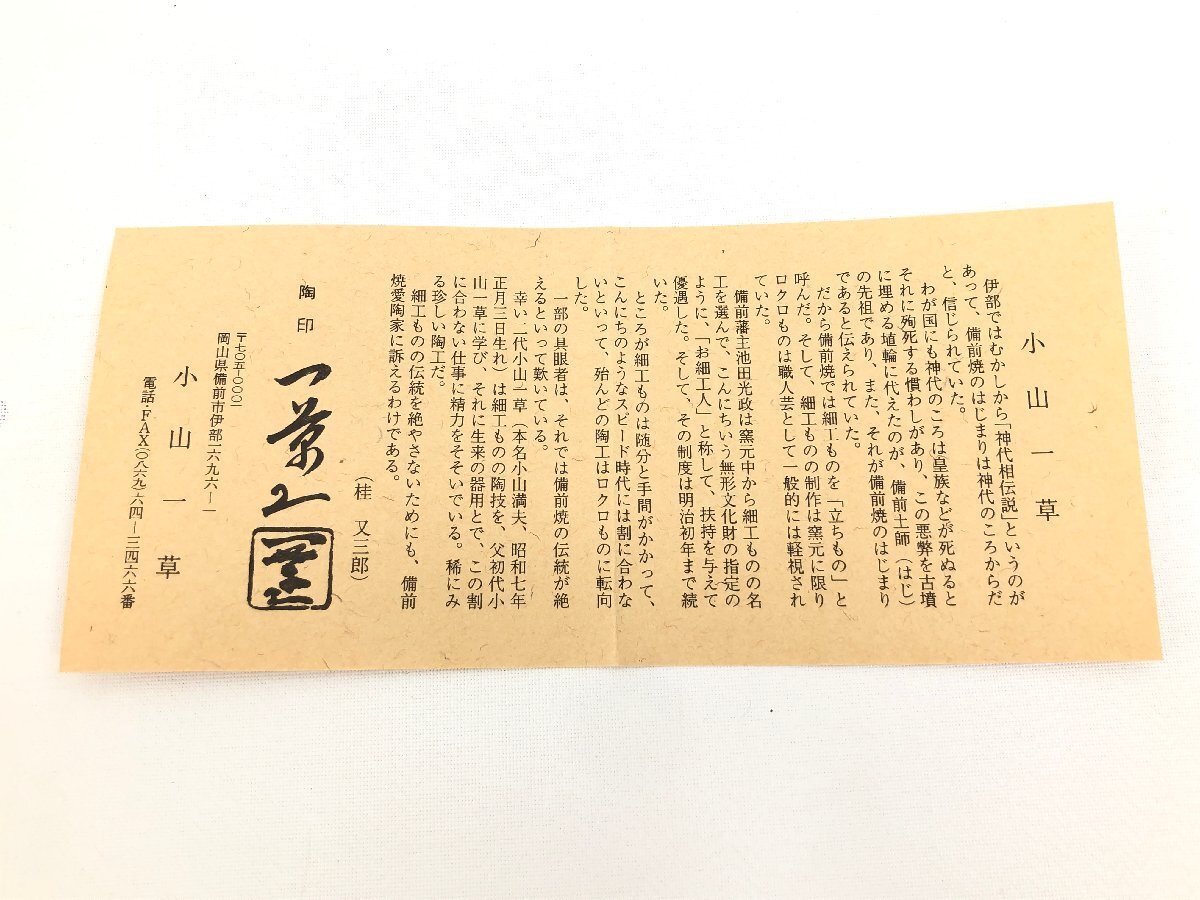 小山一草
伊部ではむかしから「神代相伝説」というのが
あって、備前焼のはじまりは神代のころからだ
と、信じられていた。
わが国にも神代のころは皇族などが死ぬると
それに殉死する慣わしがあり、この悪弊を古墳
に埋める埴輪に代えたのが、備前土師（はじ）
の先祖であり、また、それが備前焼のはじまり
であると伝えられていた。
だから備前焼では細工ものを「立ちもの」と
呼んだ。そして、細工ものの制作は窯元に限り
ロクロものは職人芸として一般的には軽視され
ていた。
備前藩主池田光政は窯元中から細工ものの名
工を選んで、こんにちいう無形文化財の指定の
ように、「お細工人」と称して、扶持を与えて
優遇した。そして、その制度は明治初年まで続
いた。
ところが細工ものは随分と手間がかかって、
こんにちのようなスピード時代には割に合わな
いといって、殆んどの陶工はロクロものに転向
した。
一部の具眼者は、それでは備前焼の伝統が絶
えるといって歎いている。
幸い二代小山一草（本名小山満夫、昭和七年
正月三日生れ）は細工ものの陶技を、父初代小
山一草に学び、それに生来の器用とで、この割
に合わない仕事に精力をそそいでいる。稀にみ
る珍しい陶工だ。
細工ものの伝統を絶やさないためにも、備前
焼愛陶家に訴えるわけである。
（桂 又三郎）
陶印
一草
〒七〇五-〇〇〇一
岡山県備前市伊部一六九六-一
小山一草
電話・FAX〇八六九-六四-三四六六番